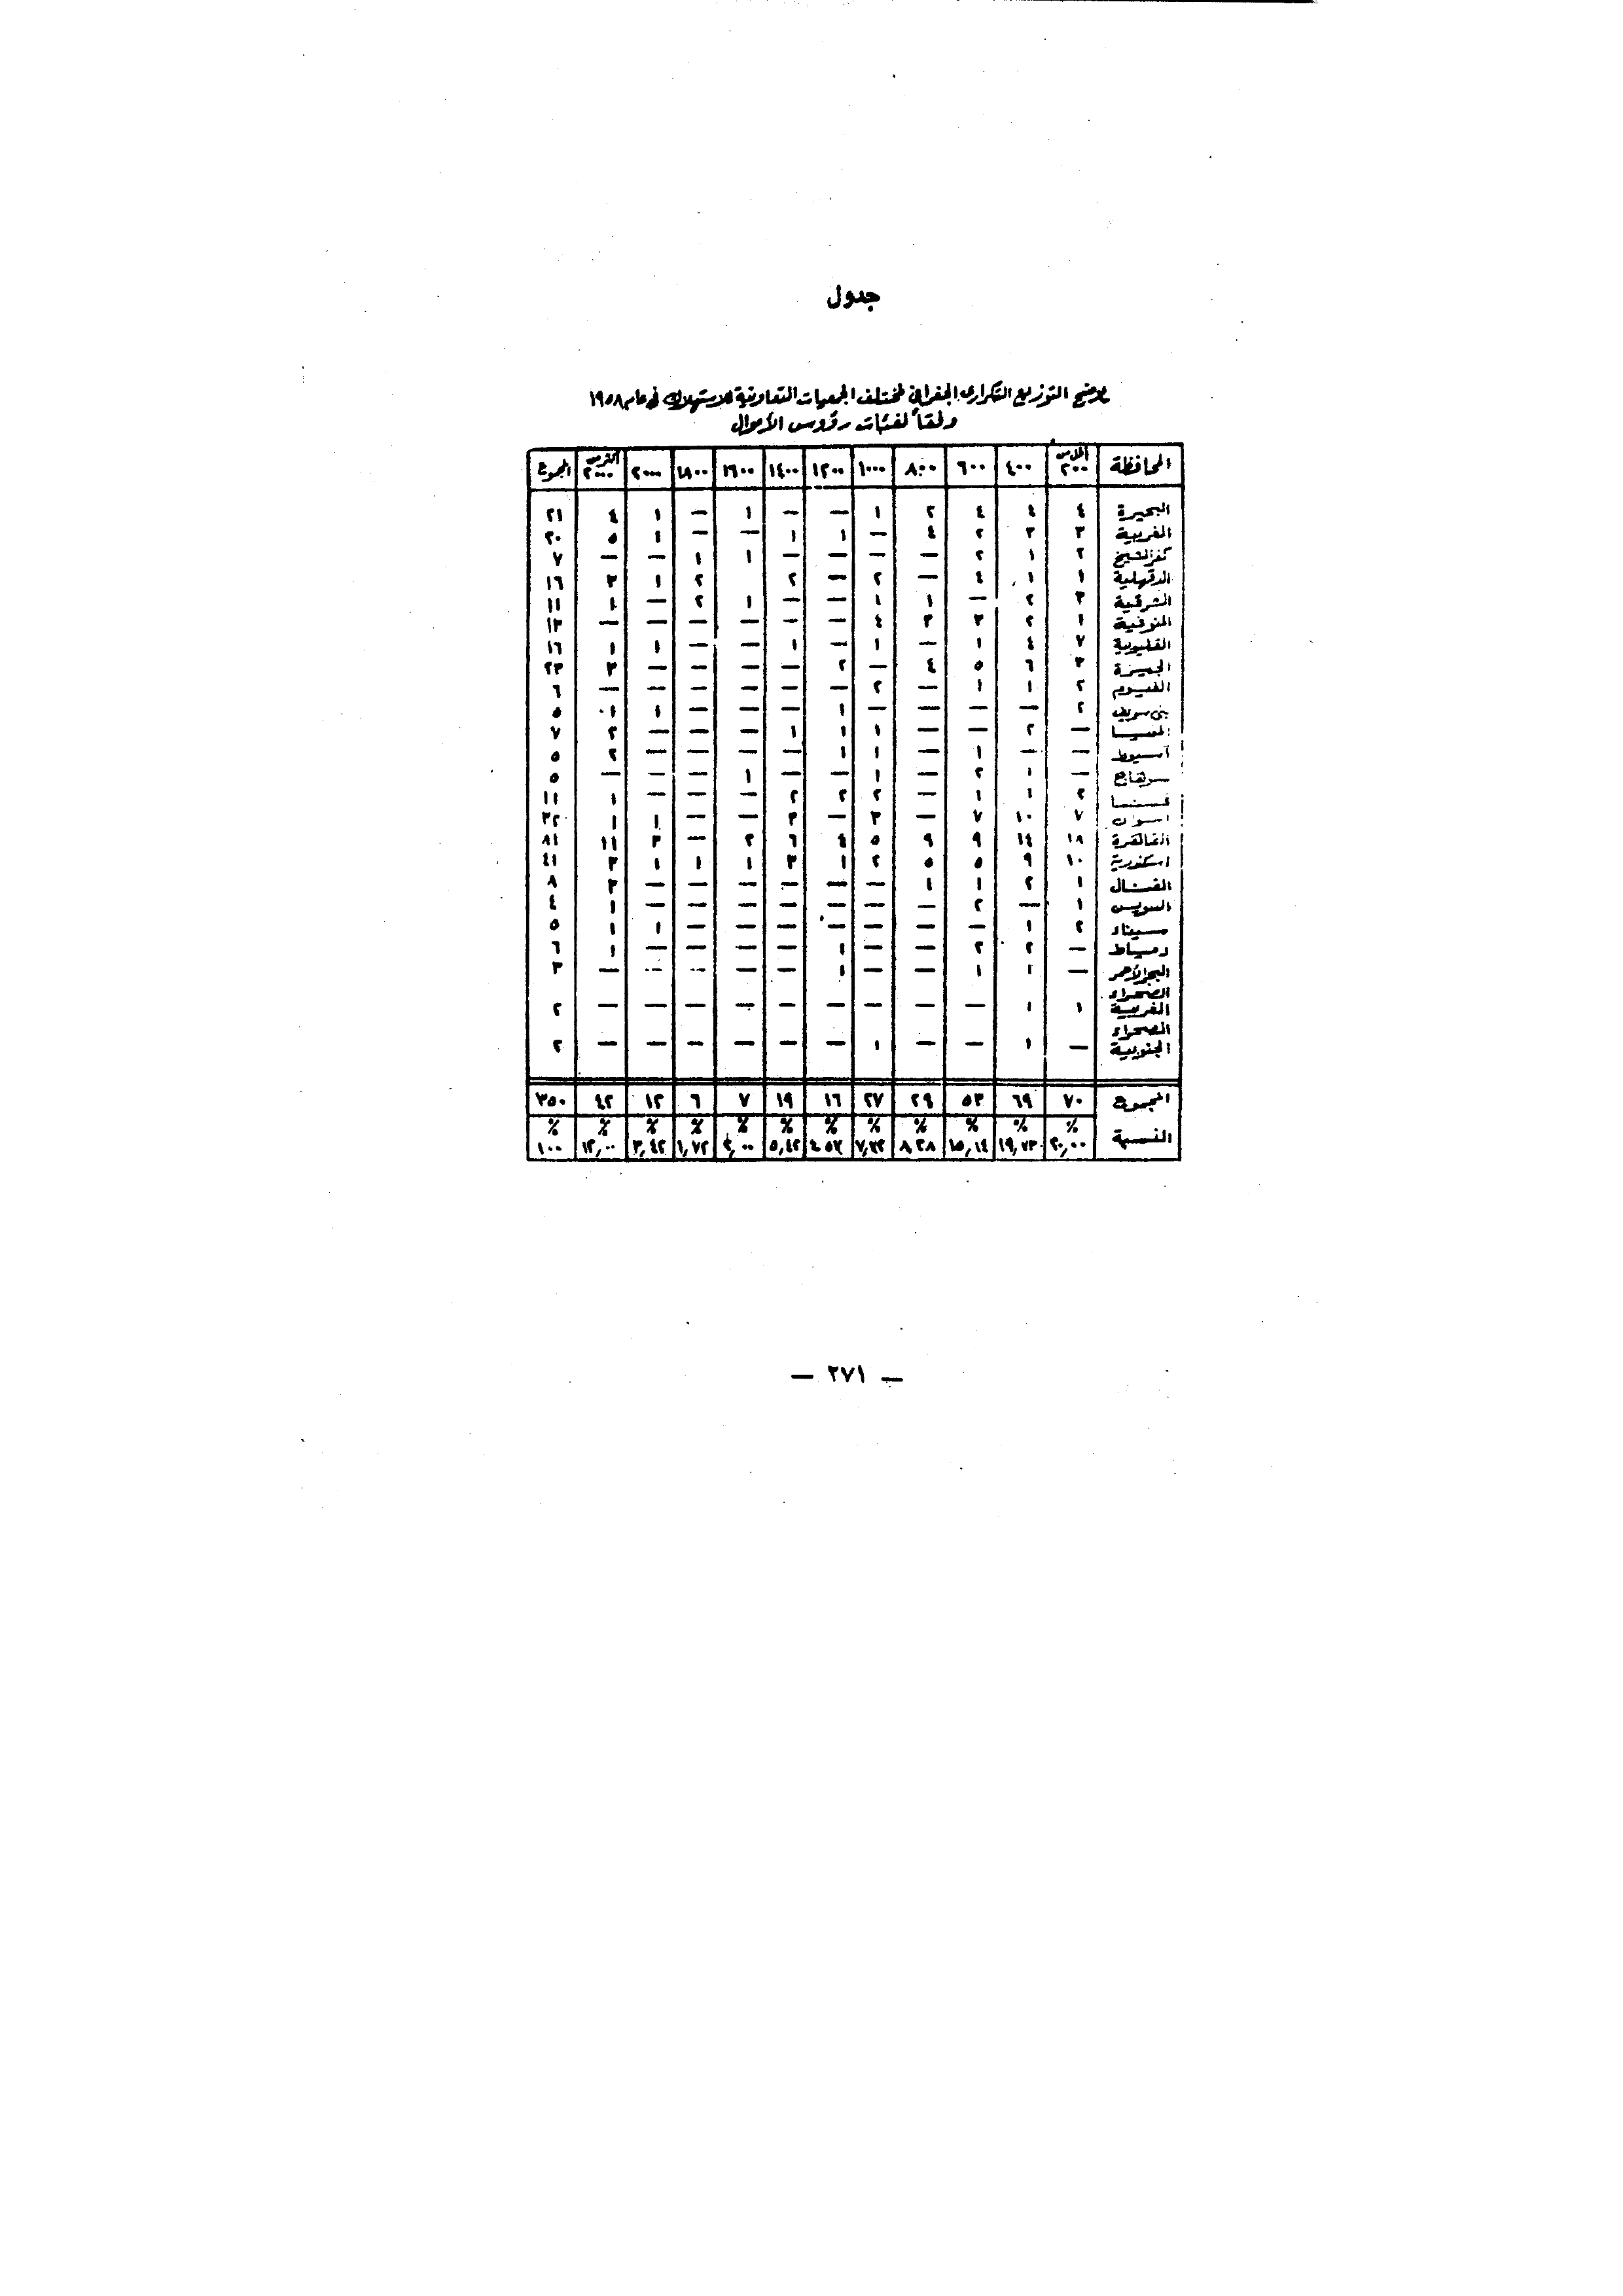 جدول
يوضح التوزيع التكرارى الجغرافى لمختلف الجمعيات التعاونية للاستهلاك فى عام ١٩٥٨
وفقاً لفئات رؤوس الأموال
المحافظة أقل من ٢٠٠ ٤٠٠ ٦٠٠ ٨٠٠ ١٠٠٠ ١٢٠٠ ١٤٠٠ ١٦٠٠ ١٨٠٠ ٢٠٠٠ أكثر من ٢٠٠٠ المجموع
البحيرة ٤ ٤ ٤ ٢ ١ — — ١ — ١ ٤ ٢١
الغربية ٣ ٣ ٢ ٤ — ١ ١ — — ١ ٥ ٢٠
كفر الشيخ ٢ ١ ٢ — — — — ١ ١ — — ٧
الدقهلية ١ ١ ٤ — ٢ — ٢ ٢ ١ ٣ ١٦
الشرقية ٣ ٢ — ١ ١ — — ١ ٢ — ١ ١١
المنوفية ١ ٢ ٣ ٣ ٤ — — — — — — ١٣
القليوبية ٧ ٤ ١ — ١ — ١ — — ١ ١ ١٦
الجيزة ٣ ٦ ٥ ٤ — ٢ — — — — ٣ ٢٣
الفيوم ٢ ١ ١ — ٢ — — — — — — ٦
بنى سويف ٢ — — — — ١ — — — ١ ١ ٥
المنيا — ٢ — — ١ ١ ١ — — — ٢ ٧
أسيوط — — ١ — ١ ١ — — — — ٢ ٥
سوهاج — ١ ٢ — ١ — — ١ — — — ٥
قنا ٢ ١ ١ — ٢ ٢ ٢ — — — ١ ١١
اسوان ٧ ١٠ ٧ — ٣ — ٣ — — ١ ١ ٣٢
القاهرة ١٨ ١٤ ٩ ٩ ٥ ٤ ٦ ٢ — ٣ ١١ ٨١
اسكندرية ١٠ ٩ ٥ ٥ ٢ ١ ٣ ١ ١ ١ ٣ ٤١
القنال ١ ٢ ١ ١ — — — — — — ٣ ٨
السويس ١ — ٢ — — — — — — — ١ ٤
سيناء ٢ ١ — — — — — — — ١ ١ ٥
دمياط — ٢ ٢ — — ١ — — — — ١ ٦
البحر الأحمر — ١ ١ — — ١ — — — — — ٣
الصحراء
الغربية ١ ١ — — — — — — — — — ٢
الصحراء
الجنوبية — ١ — — ١ — — — — — — ٢
المجموع ٧٠ ٦٩ ٥٣ ٢٩ ٢٧ ١٦ ١٩ ٧ ٦ ١٢ ٤٢ ٣٥٠
% % % % % % % % % % % %
النسبة ٢٠,٠٠ ١٩,٧٣ ١٥,١٤ ٨٢٨ ٧,٧٢ ٤٥٧ ٥,٤٢ ٢,٠٠ ١,٧٢ ٣,٤٢ ١٢,٠٠ ١٠٠
— ٢٧١ —